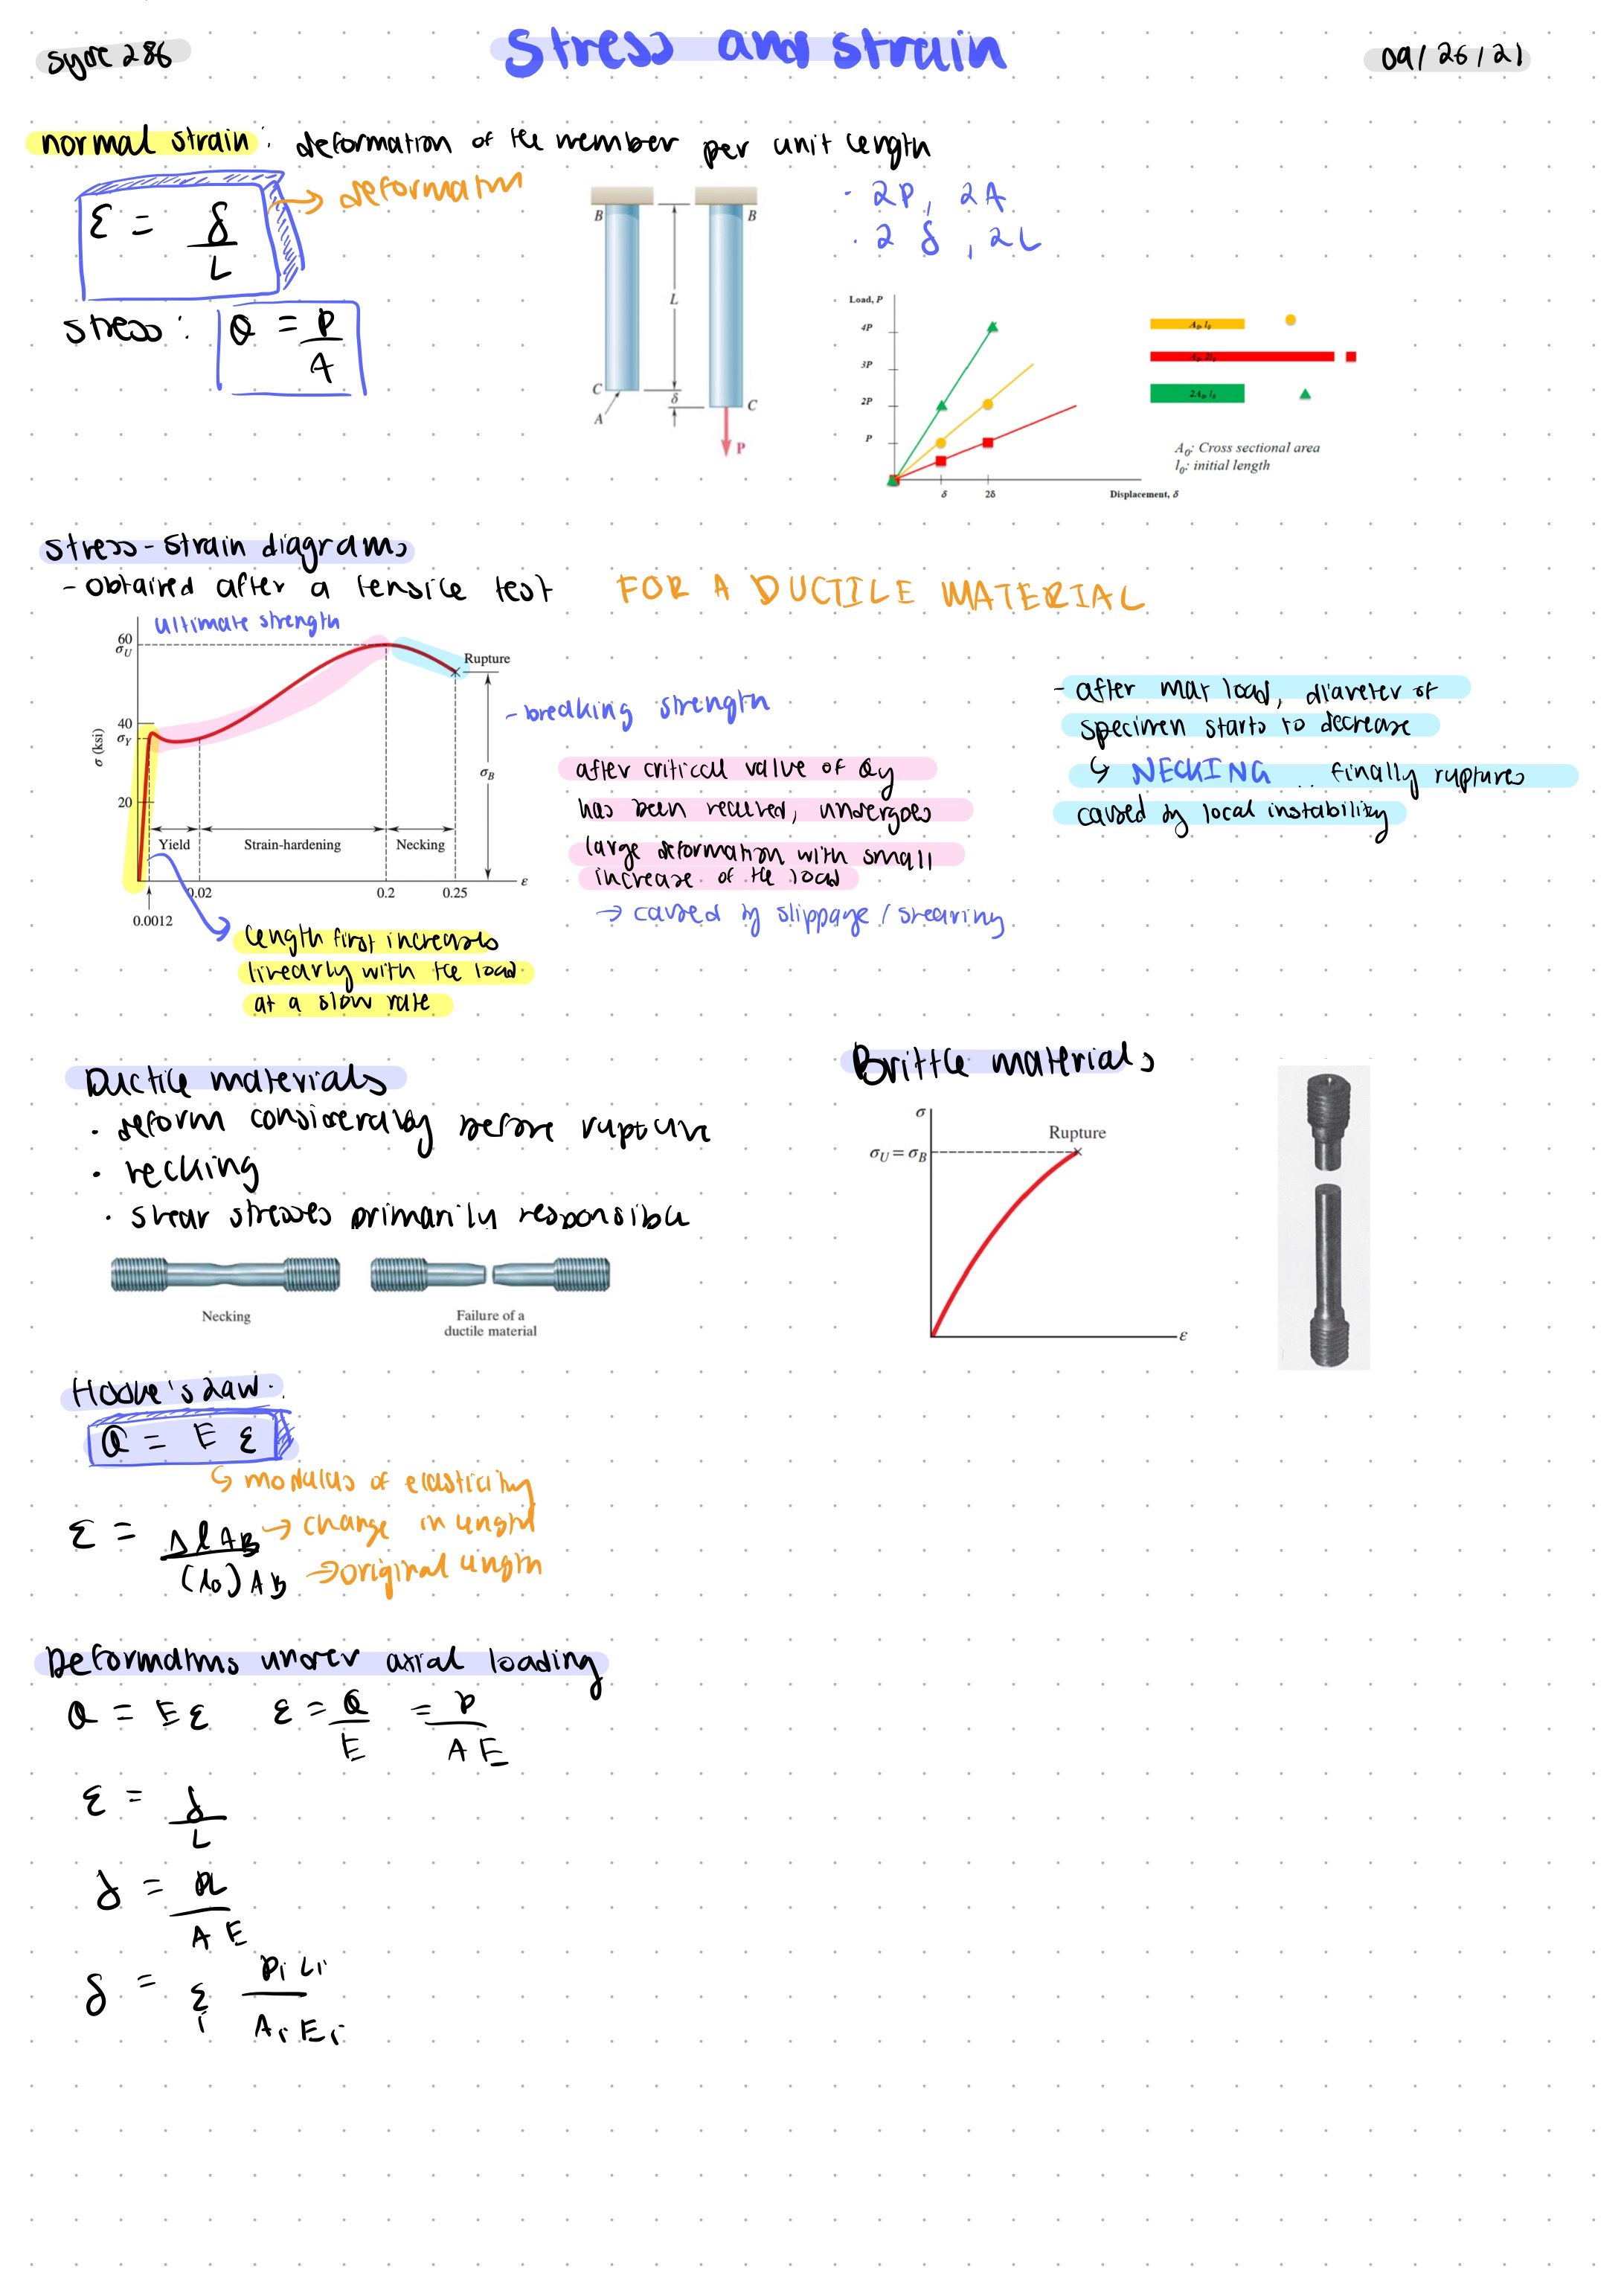 syde 286
Stress and strain
09/26/21
normal strain: deformation of the member per unit length
ε = δ/L → deformation
stress: σ = P/A
B
B
L
C
A
δ
C
P
· 2P, 2A
· 2δ, 2L
Load, P
4P
3P
2P
P
δ
2δ
Displacement, δ
A₀, l₀
A₀, 2l₀
2A₀, l₀
A₀: Cross sectional area
l₀: initial length
stress-strain diagrams
- obtained after a tensile test
FOR A DUCTILE MATERIAL
ultimate strength
60
σU
40
σY
20
σ (ksi)
Rupture
σB
Yield
Strain-hardening
Necking
0.02
0.2
0.25
ε
0.0012
- breaking strength
length first increases
linearly with the load
at a slow rate
after critical value of σy
has been reached, undergoes
large deformation with small
increase of the load
→ caused by slippage / shearing
- after max load, diameter of
specimen starts to decrease
↳ NECKING ... finally ruptures
caused by local instability
Ductile materials
· deform considerably before rupture
· necking
· shear stresses primarily responsible
Necking
Failure of a
ductile material
Brittle materials
σ
σU = σB
Rupture
ε
Hooke's Law
σ = E ε
↳ modulus of elasticity
ε = Δl AB / (l₀) AB
→ change in length
→ original length
Deformations under axial loading
σ = Eε   ε = σ/E = P/AE
ε = δ/L
δ = PL/AE
δ = Σi PiLi/AiEi